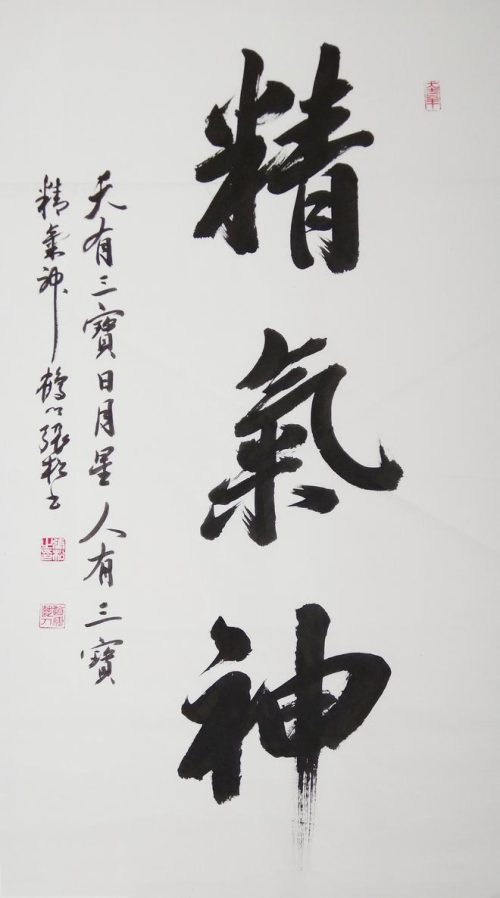 精氣神
天有三寶日月星人有三寶
精氣神 張松書